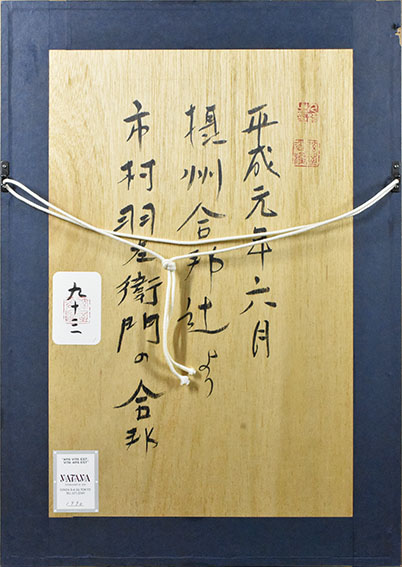 平成元年六月
摂州合邦辻より
市村羽左衛門の合邦
九十三
NATANA